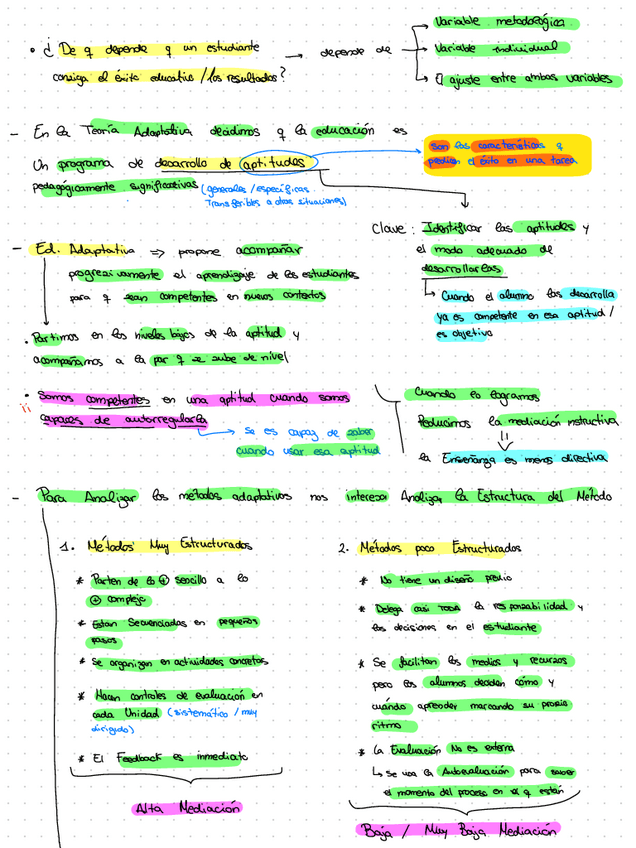 • ¿ De q depende q un estudiante
consiga el éxito educativo / los resultados?
→ depende de
Variable metodológica
Variable individual
El ajuste entre ambas variables
- En la Teoría Adaptativa decidimos q la educación es
Un programa de desarrollo de aptitudes
pedagógicamente significativas (generales / específicas
Transferibles a otras situaciones)
son las características q
predicen el éxito en una tarea
Clave: Identificar las aptitudes y
el modo adecuado de
desarrollarlas
↳ Cuando el alumno las desarrolla
ya es competente en esa aptitud /
es objetivo
- Ed. Adaptativa => propone acompañar
progresivamente el aprendizaje de los estudiantes
para q sean competentes en nuevos contextos
• Partimos en los niveles bajos de la aptitud y
acompañamos a la par q se sube de nivel
• Somos competentes en una aptitud cuando somos
¡¡ capaces de autorregularla
→ se es capaz de saber
cuando usar esa aptitud
Cuando lo logramos
Reducimos la mediación instructiva
⇓
la Enseñanza es menos directiva
- Para Analizar los métodos adaptativos nos interesa Analizar la Estructura del Método
1. Métodos Muy Estructurados
* Parten de lo ⊕ sencillo a lo
⊕ complejo
* Estan Secuenciados en pequeños
pasos
* Se organizan en actividades concretas
* Hacen controles de evaluación en
cada Unidad (sistemático / muy
dirigido)
* El Feedback es inmediato
Alta Mediación
2. Métodos poco Estructurados
* No tiene un diseño previo
* Delega casi TODA la responsabilidad y
las decisiones en el estudiante
* Se facilitan los medios y recursos
pero los alumnos deciden cómo y
cuándo aprender marcando su propio
ritmo
* La Evaluación No es externa
↳ Se usa la Autoevaluación para saber
el momento del proceso en el q están
Baja / Muy Baja Mediación